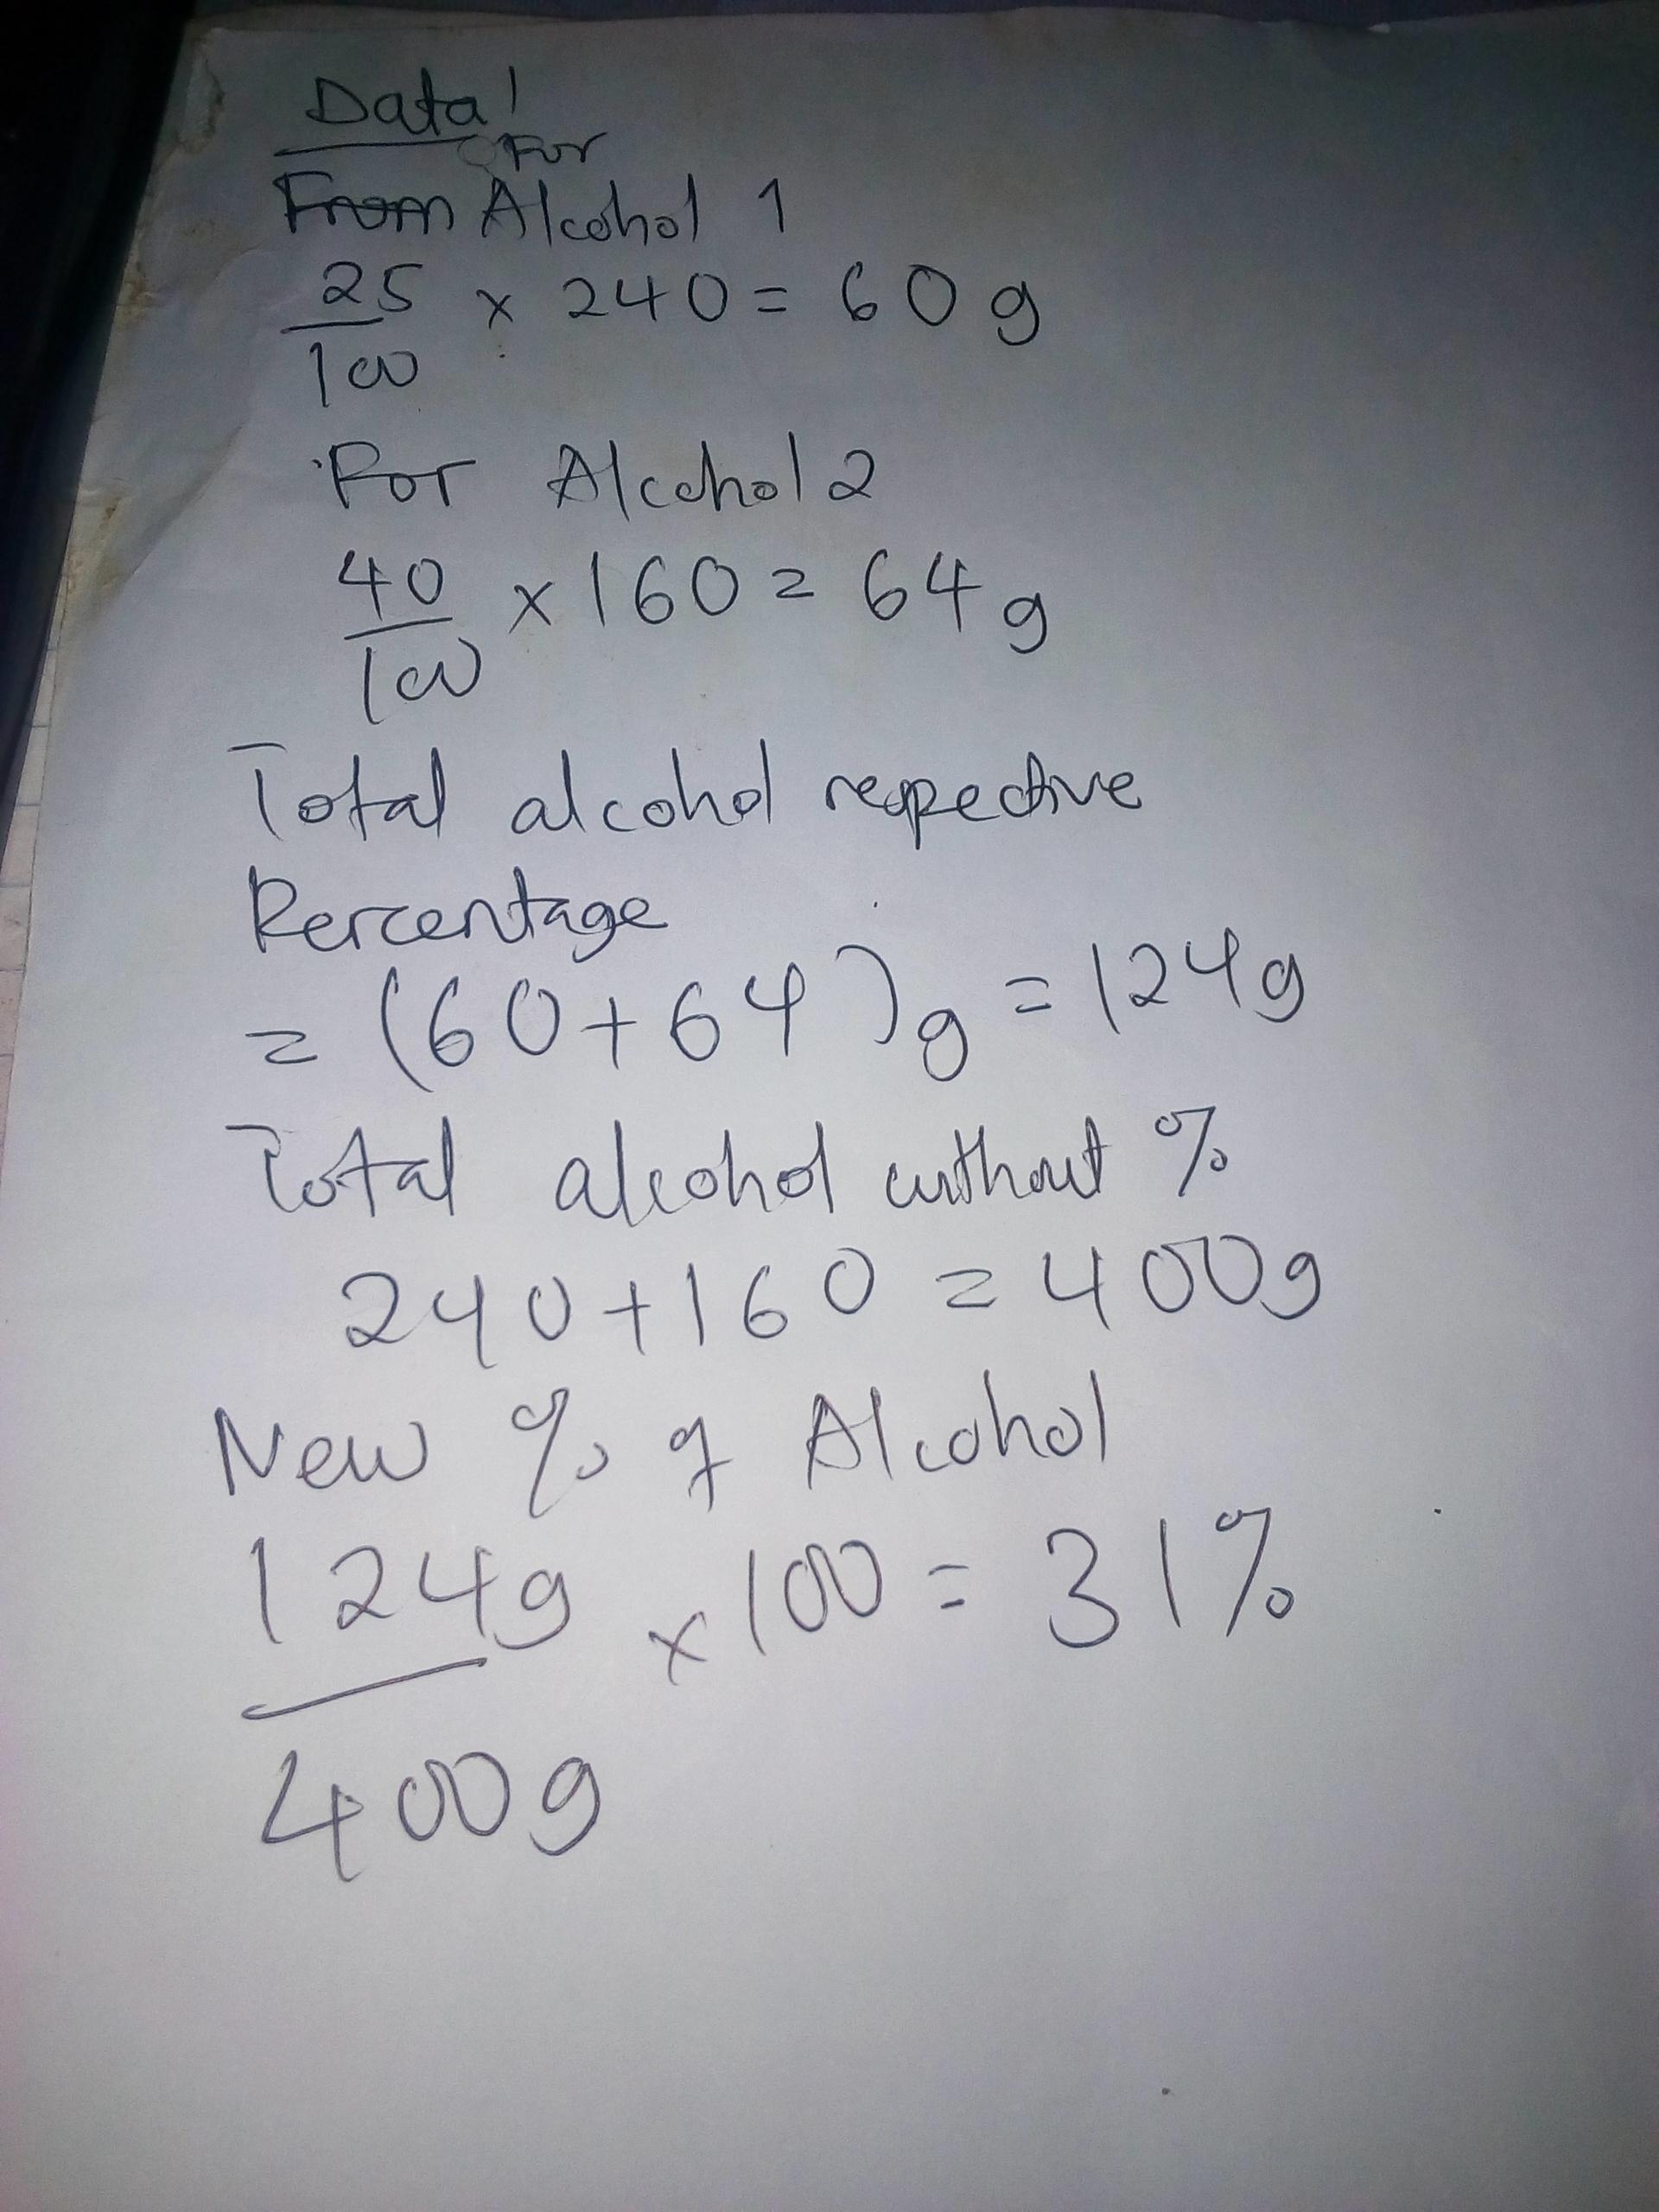 Data!
For
From Alcohol 1
25/100 x 240 = 60g
For Alcohol 2
40/100 x 160 = 64g
Total alcohol respective
Percentage
= (60+64)g = 124g
Total alcohol without %
240+160 = 400g
New % of Alcohol
124g/400g x 100 = 31%